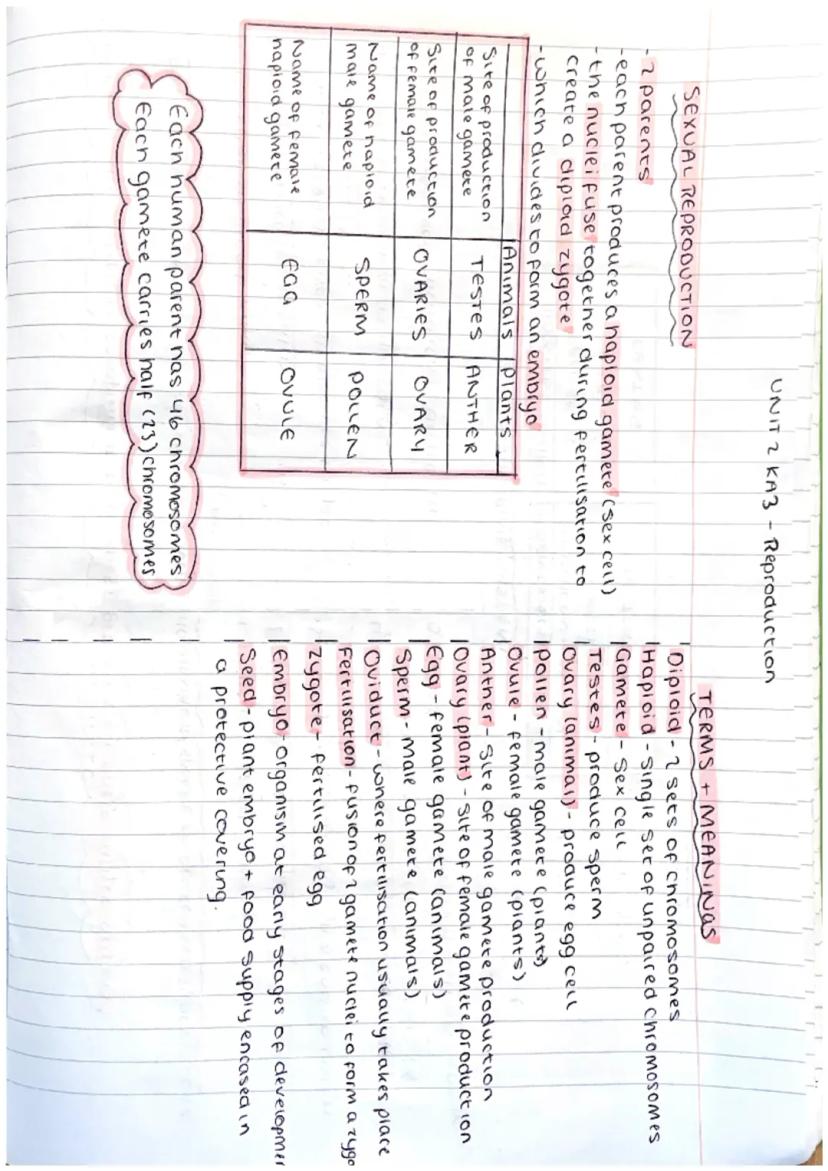 UNIT 2 KA3 - Reproduction
SEXUAL REPRODUCTION
- 2 parents
- each parent produces a haploid gamete (sex cell)
- the nuclei fuse together during fertilisation to
create a diploid zygote
- which divides to form an embryo
Animals Plants
Site of production of male gamete TESTES ANTHER
Site of production of female gamete OVARIES OVARY
Name of haploid male gamete SPERM POLLEN
Name of female haploid gamete EGG OVULE
Each human parent has 46 chromosomes
Each gamete carries half (23) chromosomes
TERMS + MEANINGS
Diploid - 2 sets of chromosomes
Haploid - single set of unpaired chromosomes
Gamete - sex cell
Testes - produce sperm
Ovary (animal) - produce egg cell
Pollen - male gamete (plants)
Ovule - female gamete (plants)
Anther - site of male gamete production
Ovary (plant) - site of female gamete production
Egg - female gamete (animals)
Sperm - male gamete (animals)
Oviduct - where fertilisation usually takes place
Fertilisation - fusion of 2 gamete nuclei to form a zygo
Zygote - fertilised egg
Embryo - organism at early stages of developmen
Seed - plant embryo + food supply encased in
a protective covering.